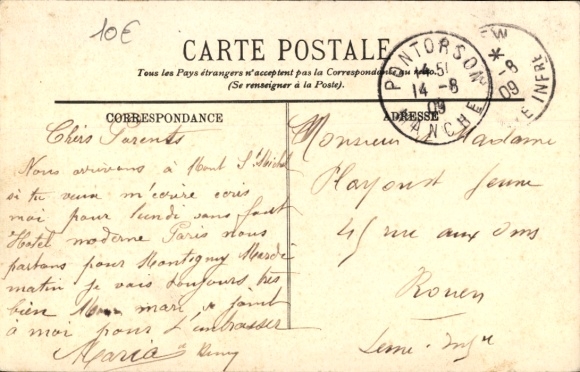 10€
CARTE POSTALE
Tous les Pays étrangers n'acceptent pas la Correspondance au recto.
(Se renseigner à la Poste).
CORRESPONDANCE
Chers Parents
Nous arrivons à Mont St Michel
si tu veux m'écrire écris
moi pour lundi sans faut
Hotel moderne Paris nous
partons pour Montigny Mardi
matin je vais toujours très
bien Mon mari se joint
à moi pour t'embrasser
Maria
ADRESSE
Monsieur Madame
Jeune
45 rue aux Ours
Rouen
Seine-Infre
PONTORSON
14 -8
09
MANCHE
-8
09
INFRE